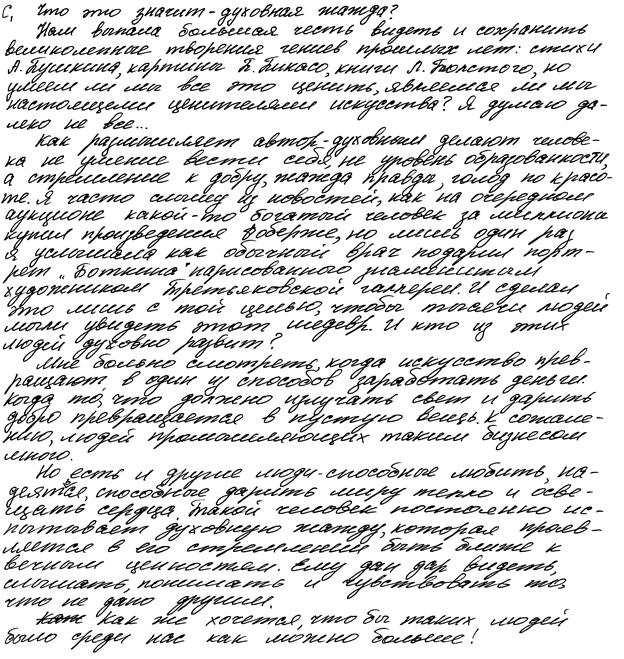 С1 Что это значит-духовная жажда?
Нам выпала большая честь видеть и сохранить
великолепные творения гениев прошлых лет: стихи
А.Пушкина, картины П.Пикасо, книги Л.Толстого, но
умеем ли мы все это ценить, являемся ли мы
настоящими ценителями искусства? Я думаю да-
леко не все...
Как размышляет автор-духовным делают челове-
ка не умение вести себя, не уровень образованности,
а стремление к добру, жажда правды, голод по красо-
те. Я часто слышу из новостей, как на очередном
аукционе какой-то богатый человек за миллионы
купил произведения Фоберже, но лишь один раз
я услышала как обычный врач подарил порт-
рет "Боткина" нарисованного знаменитым
художником Третьяковской галлереи. И сделал
это лишь с той целью, чтобы тысячи людей
могли увидеть этот шедевр. И кто из этих
людей духовно развит?
Мне больно смотреть, когда искусство прев-
ращают в один из способов заработать деньги.
Когда то, что должно излучать свет и дарить
добро превращается в пустую вещь. К сожале-
нию, людей промышляющих таким бизнесом
много.
Но есть и другие люди-способные любить, на-
деятся, способные дарить миру тепло и осве-
щать сердца. Такой человек постоянно ис-
пытывает духовную жажду, которая прояв-
ляется в его стремлении быть ближе к
вечным ценностям. Ему дан дар видеть,
слышать, понимать и чувствовать то,
что не дано другим.
Как же хочется, что бы таких людей
было среди нас как можно больше!